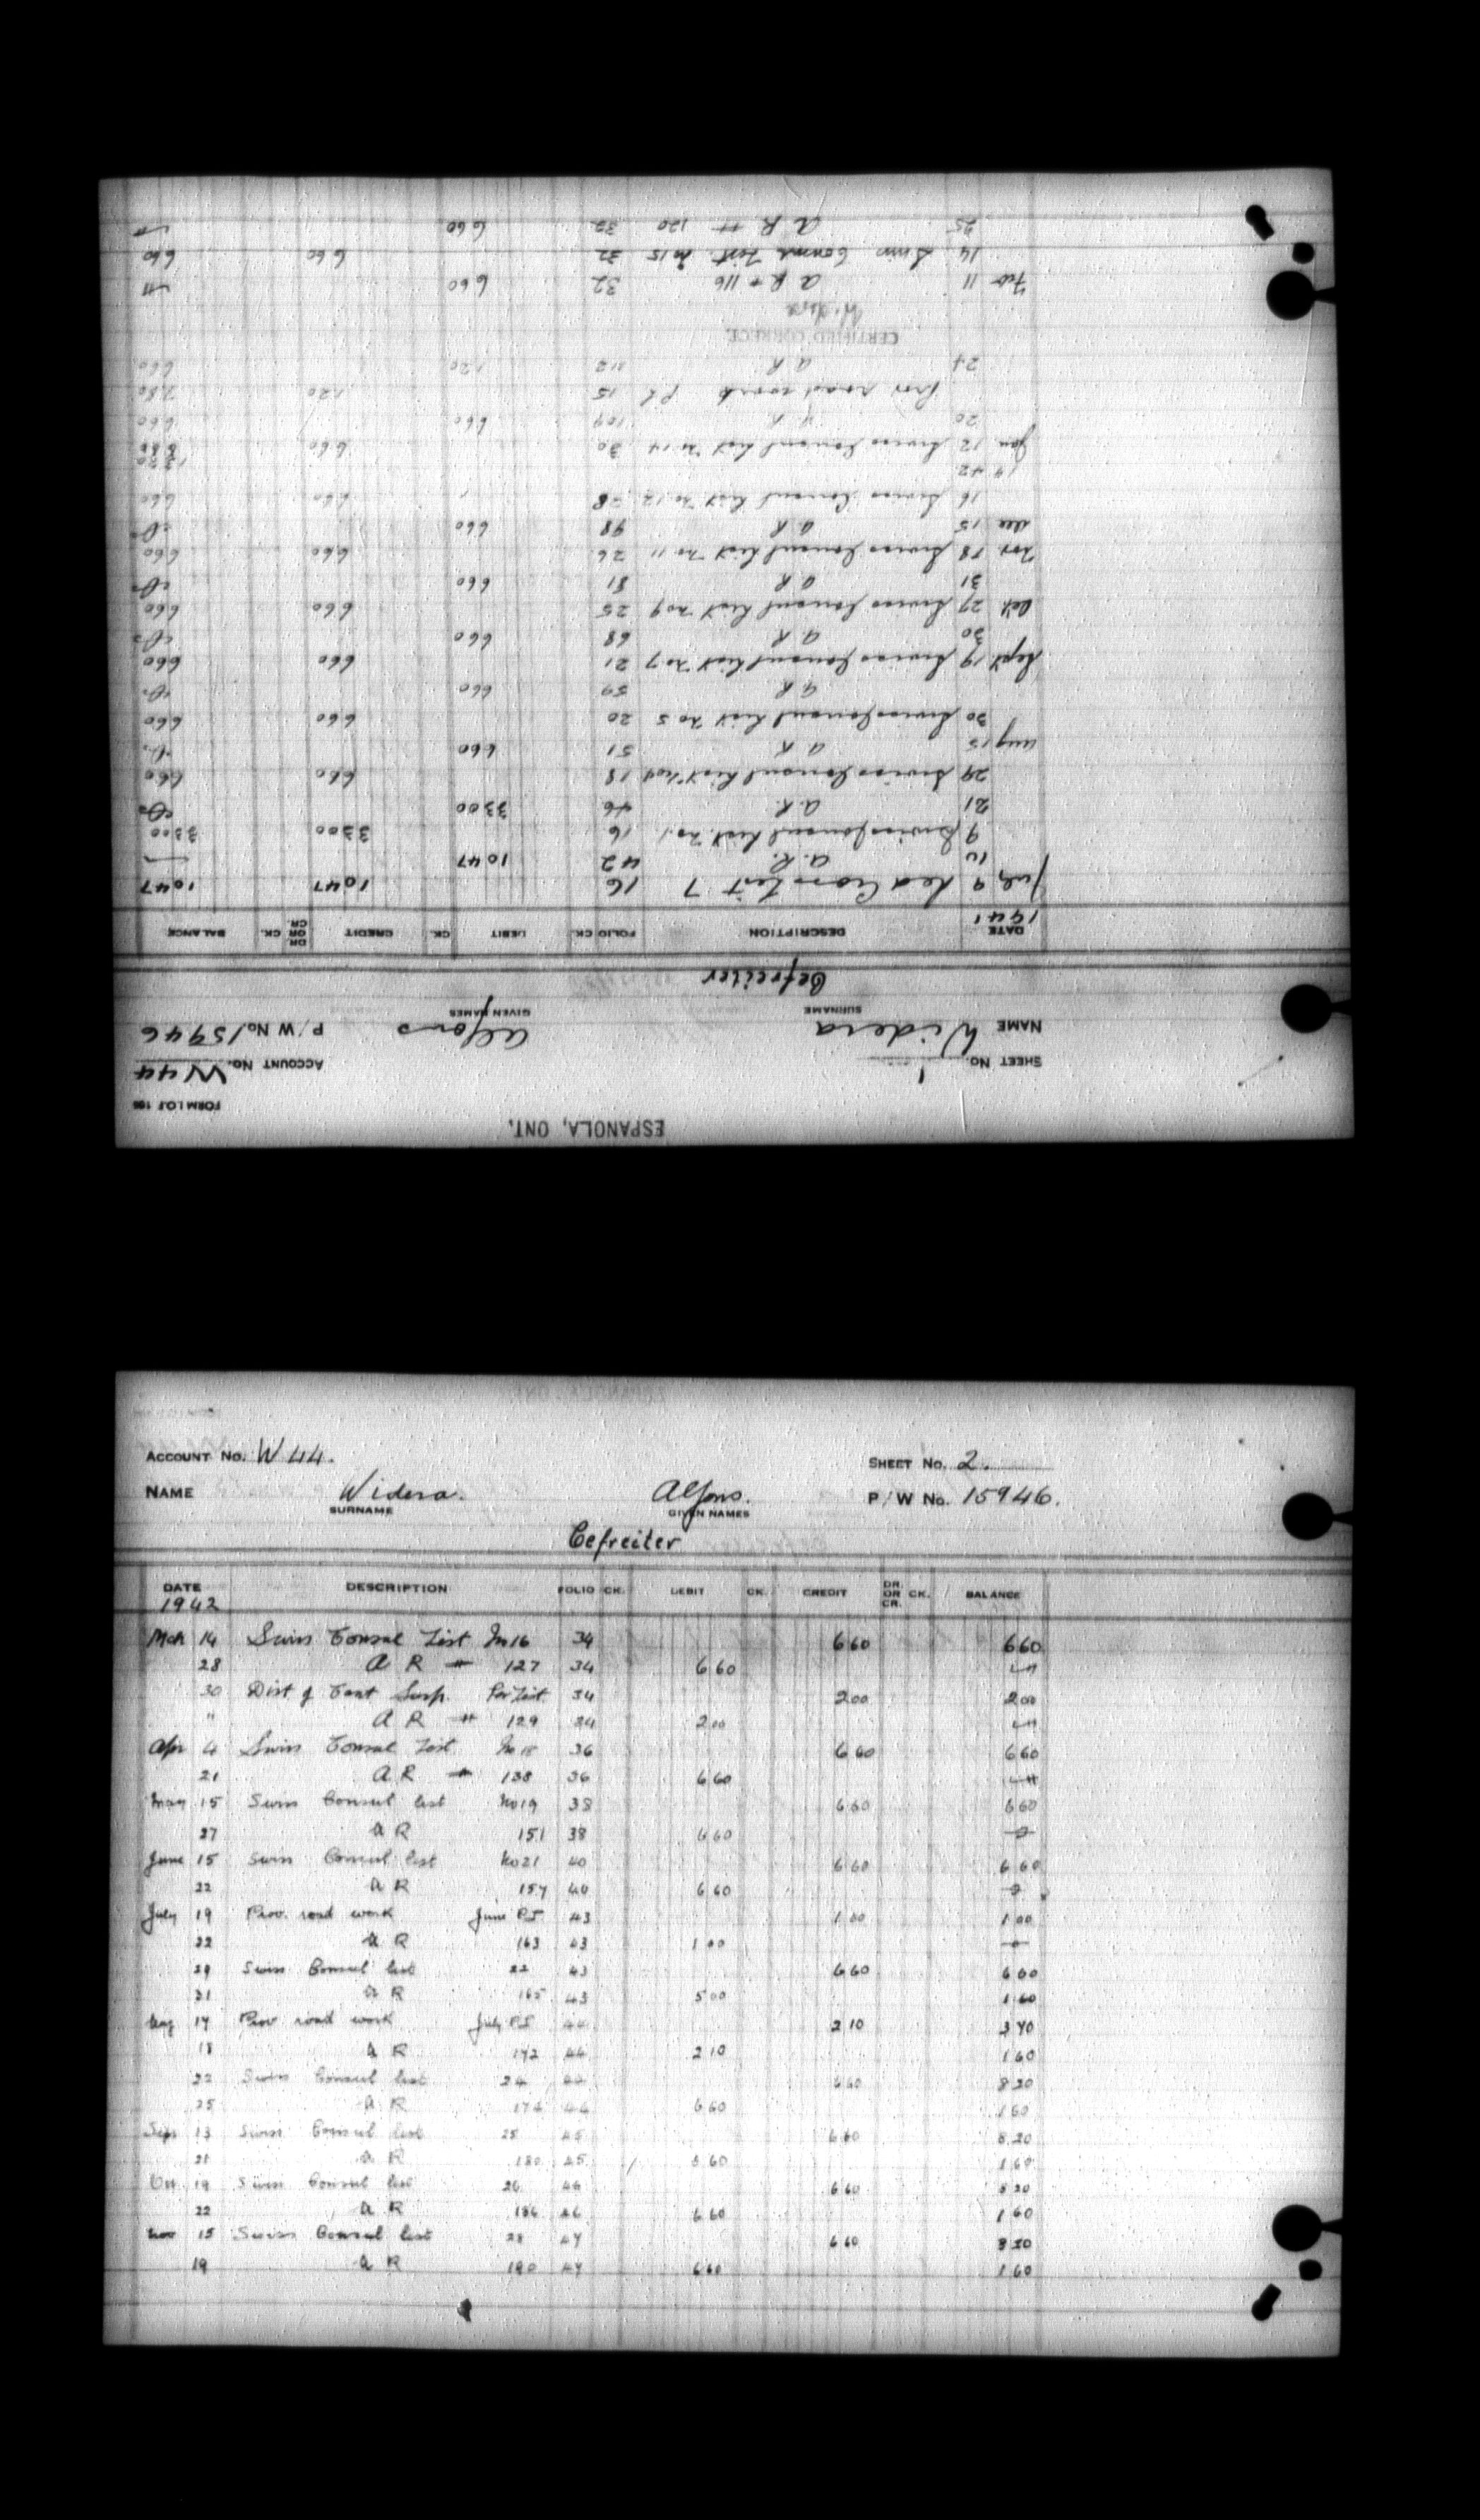 ESPANOLA, ONT.
FORM I.O.T 105
SHEET No. 1 ACCOUNT No. W 44
NAME Widera Alfons P/W No. 15946
SURNAME GIVEN NAMES
Gefreiter
DATE DESCRIPTION FOLIO CK. DEBIT CK. CREDIT DR. OR CR. CK. BALANCE
1941
July 9 Red Cross List 7 16 1047 1047
10 A.R. 42 1047
9 Swiss Consul List No. 1 16 3300 3300
21 A.R. 46 3300 0
29 Swiss Consul List No4 18 660 660
Aug 15 A R 51 660 0
30 Swiss Consul List No 5 20 660 660
A R 59 660 0
Sept 19 Swiss Consul List No 7 21 660 660
30 A R 68 660 0
Oct 29 Swiss Consul List No 9 25 660 660
31 A R 81 660 0
Nov 18 Swiss Consul List No 11 26 660 660
Dec 15 A R 98 660 0
16 Swiss Consul List No 12 28 660 660
1942
Jan 12 Swiss Consul List No 14 30 660 1320
20 A R 109 660 660
Prov road work P L 15 120 780
27 A R 112 120 660
CERTIFIED CORRECT.
Widera
Feb 11 A R # 116 32 660
14 Swiss Consul List No 15 32 660 660
25 A R # 120 32 660
ACCOUNT No. W 44. SHEET No. 2.
NAME Widera. Alfons. P/W No. 15946.
SURNAME GIVEN NAMES
Gefreiter
DATE DESCRIPTION FOLIO CK. DEBIT CK. CREDIT DR. OR CR. CK. BALANCE
1942
Mch 14 Swiss Consul List No 16 34 660 660
28 A R # 127 34 660
30 Dist of Cant Susp. Per List 34 200 200
" A R # 129 34 200
Apr 4 Swiss Consul List No 18 36 660 660
21 A R # 138 36 660
May 15 Swiss Consul list No 19 38 660 660
27 A R 151 38 660 0
June 15 Swiss Consul list No 21 40 660 660
22 A R 157 40 660 0
July 19 Prov. road work June P.S 43 100 100
22 A R 163 43 100 0
29 Swiss Consul list 22 43 660 660
31 A R 165 43 500 160
Aug 17 Prov road work July P.S 44 210 370
18 A R 172 44 210 160
22 Swiss Consul list 24 44 660 820
25 A R 174 44 660 160
Sep 13 Swiss Consul list 25 45 660 820
21 A R 180 45 660 160
Oct 19 Swiss Consul list 26 46 660 820
22 A R 186 46 660 160
Nov 15 Swiss Consul list 28 47 660 820
19 A R 190 47 660 160